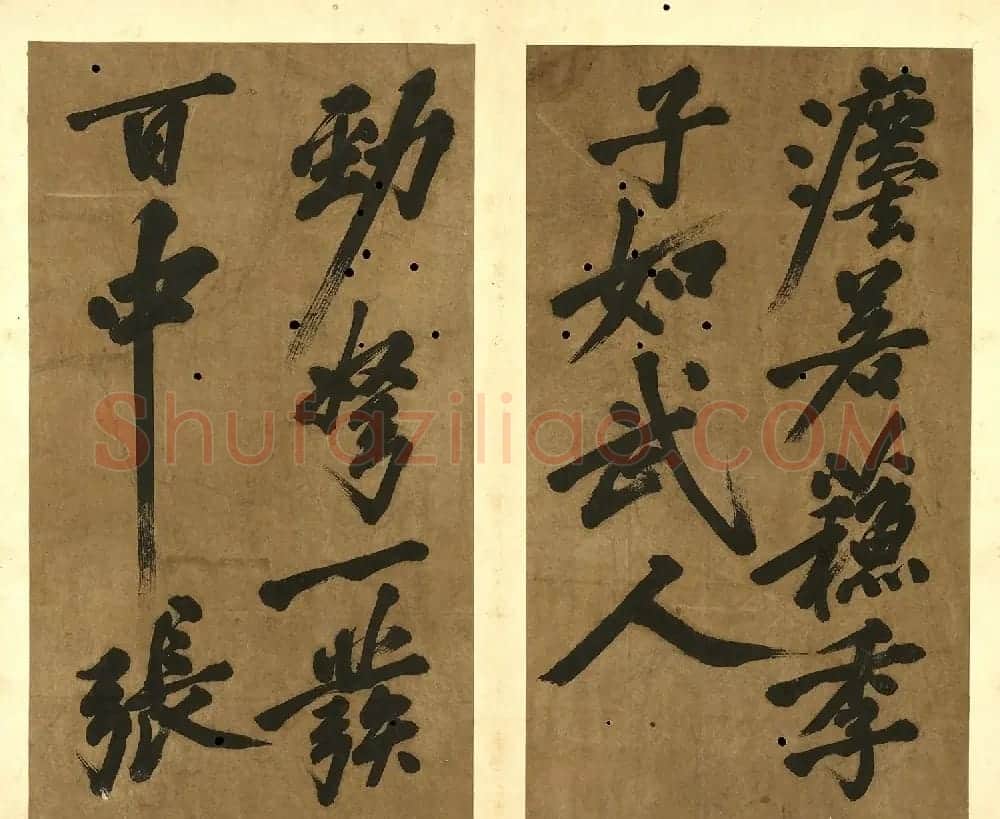 若蘓季
子如武人
勁弩一發
百中張
Shufaziliao.COM